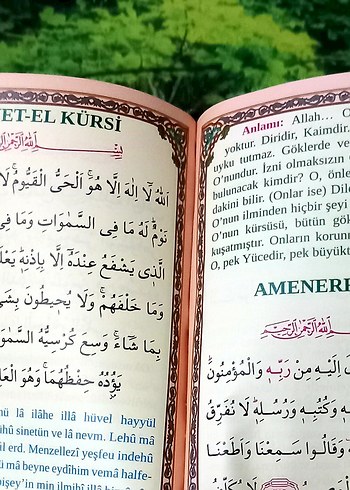 ET-EL KÜRSİ
اَللّٰهُ لَٓا اِلٰهَ اِلَّا هُوَۚ اَلْحَيُّ الْقَيُّومُۚ لَا
نَوْمٌۜ لَهُ مَا فِي السَّمٰوَاتِ وَمَا فِي
الَّذ۪ي يَشْفَعُ عِنْدَهُٓ اِلَّا بِاِذْنِه۪ۜ يَعْلَ
وَمَا خَلْفَهُمْۚ وَلَا يُح۪يطُونَ بِشَيْ
بِمَا شَٓاءَۚ وَسِعَ كُرْسِيُّهُ السَّمٰو
يَؤُ۫دُهُ حِفْظُهُمَاۚ وَهُوَ الْعَلِ
lâ ilâhe illâ hüvel hayyül
sinetün ve lâ nevm. Lehû mâ
erd. Menzellezî yeşfeu indehû
mâ beyne eydîhim vemâ halfe-
bişey'in min ilmihî illâ bi
Anlamı: Allah... O
yoktur. Diridir, Kaimdir.
uyku tutmaz. Göklerde ve
O'nundur. İzni olmaksızın
bulunacak kimdir? O, önle
dakini bilir. (Onlar ise) Dile
O'nun ilminden hiçbir şeyi
O'nun kürsüsü, bütün gök
kuşatmıştır. Onların korun
O, pek Yücedir, pek büyükt
AMENER
اِلَيْهِ مِنْ رَبِّه۪ وَالْمُؤْمِنُونَۜ
وَكُتُبِه۪ وَرُسُلِه۪ۜ لَا نُفَرِّقُ
وَقَالُوا سَمِعْنَا وَاَطَعْنَا